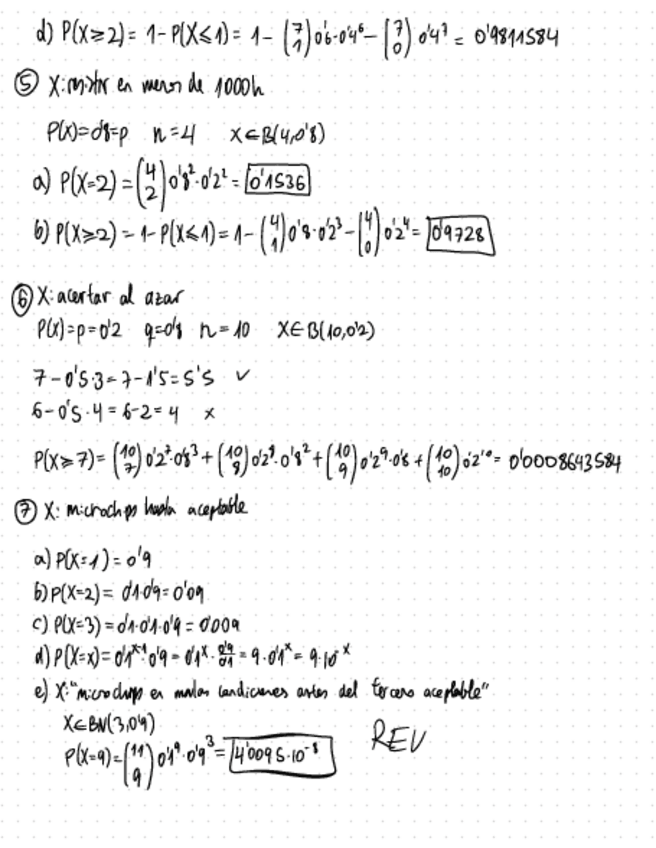 d) P(X≥2) = 1-P(X≤1) = 1 - (7 1) 0'6·0'4⁶ - (7 0) 0'4⁷ = 0'9811584
⑤ X: en menos de 1000h
P(X)=0'8=p n=4 X∈B(4,0'8)
a) P(X=2) = (4 2) 0'8²·0'2² = 0'1536
b) P(X≥2) = 1-P(X≤1) = 1 - (4 1) 0'8·0'2³ - (4 0) 0'2⁴ = 0'9728
⑥ X: acertar al azar
P(X)=p=0'2 q=0'8 n=10 X∈B(10,0'2)
7-0'5·3=7-1'5=5'5 ✓
6-0'5·4=6-2=4 x
P(X≥7) = (10 7) 0'2⁷·0'8³ + (10 8) 0'2⁸·0'8² + (10 9) 0'2⁹·0'8 + (10 10) 0'2¹⁰ = 0'0008643584
⑦ X: microchips hasta aceptable
a) P(X=1) = 0'9
b) P(X=2) = 0'1·0'9=0'09
c) P(X=3) = 0'1·0'1·0'9 = 0'009
d) P(X=x) = 0'1ˣ⁻¹·0'9 = 0'1ˣ·0'9/0'1 = 9·0'1ˣ = 9·10⁻ˣ
e) X: "microchips en malas condiciones antes del tercero aceptable"
X∈BN(3,0'9)
P(X=9) = (11 9) 0'1⁹·0'9³ = 4'0095·10⁻⁸
REV